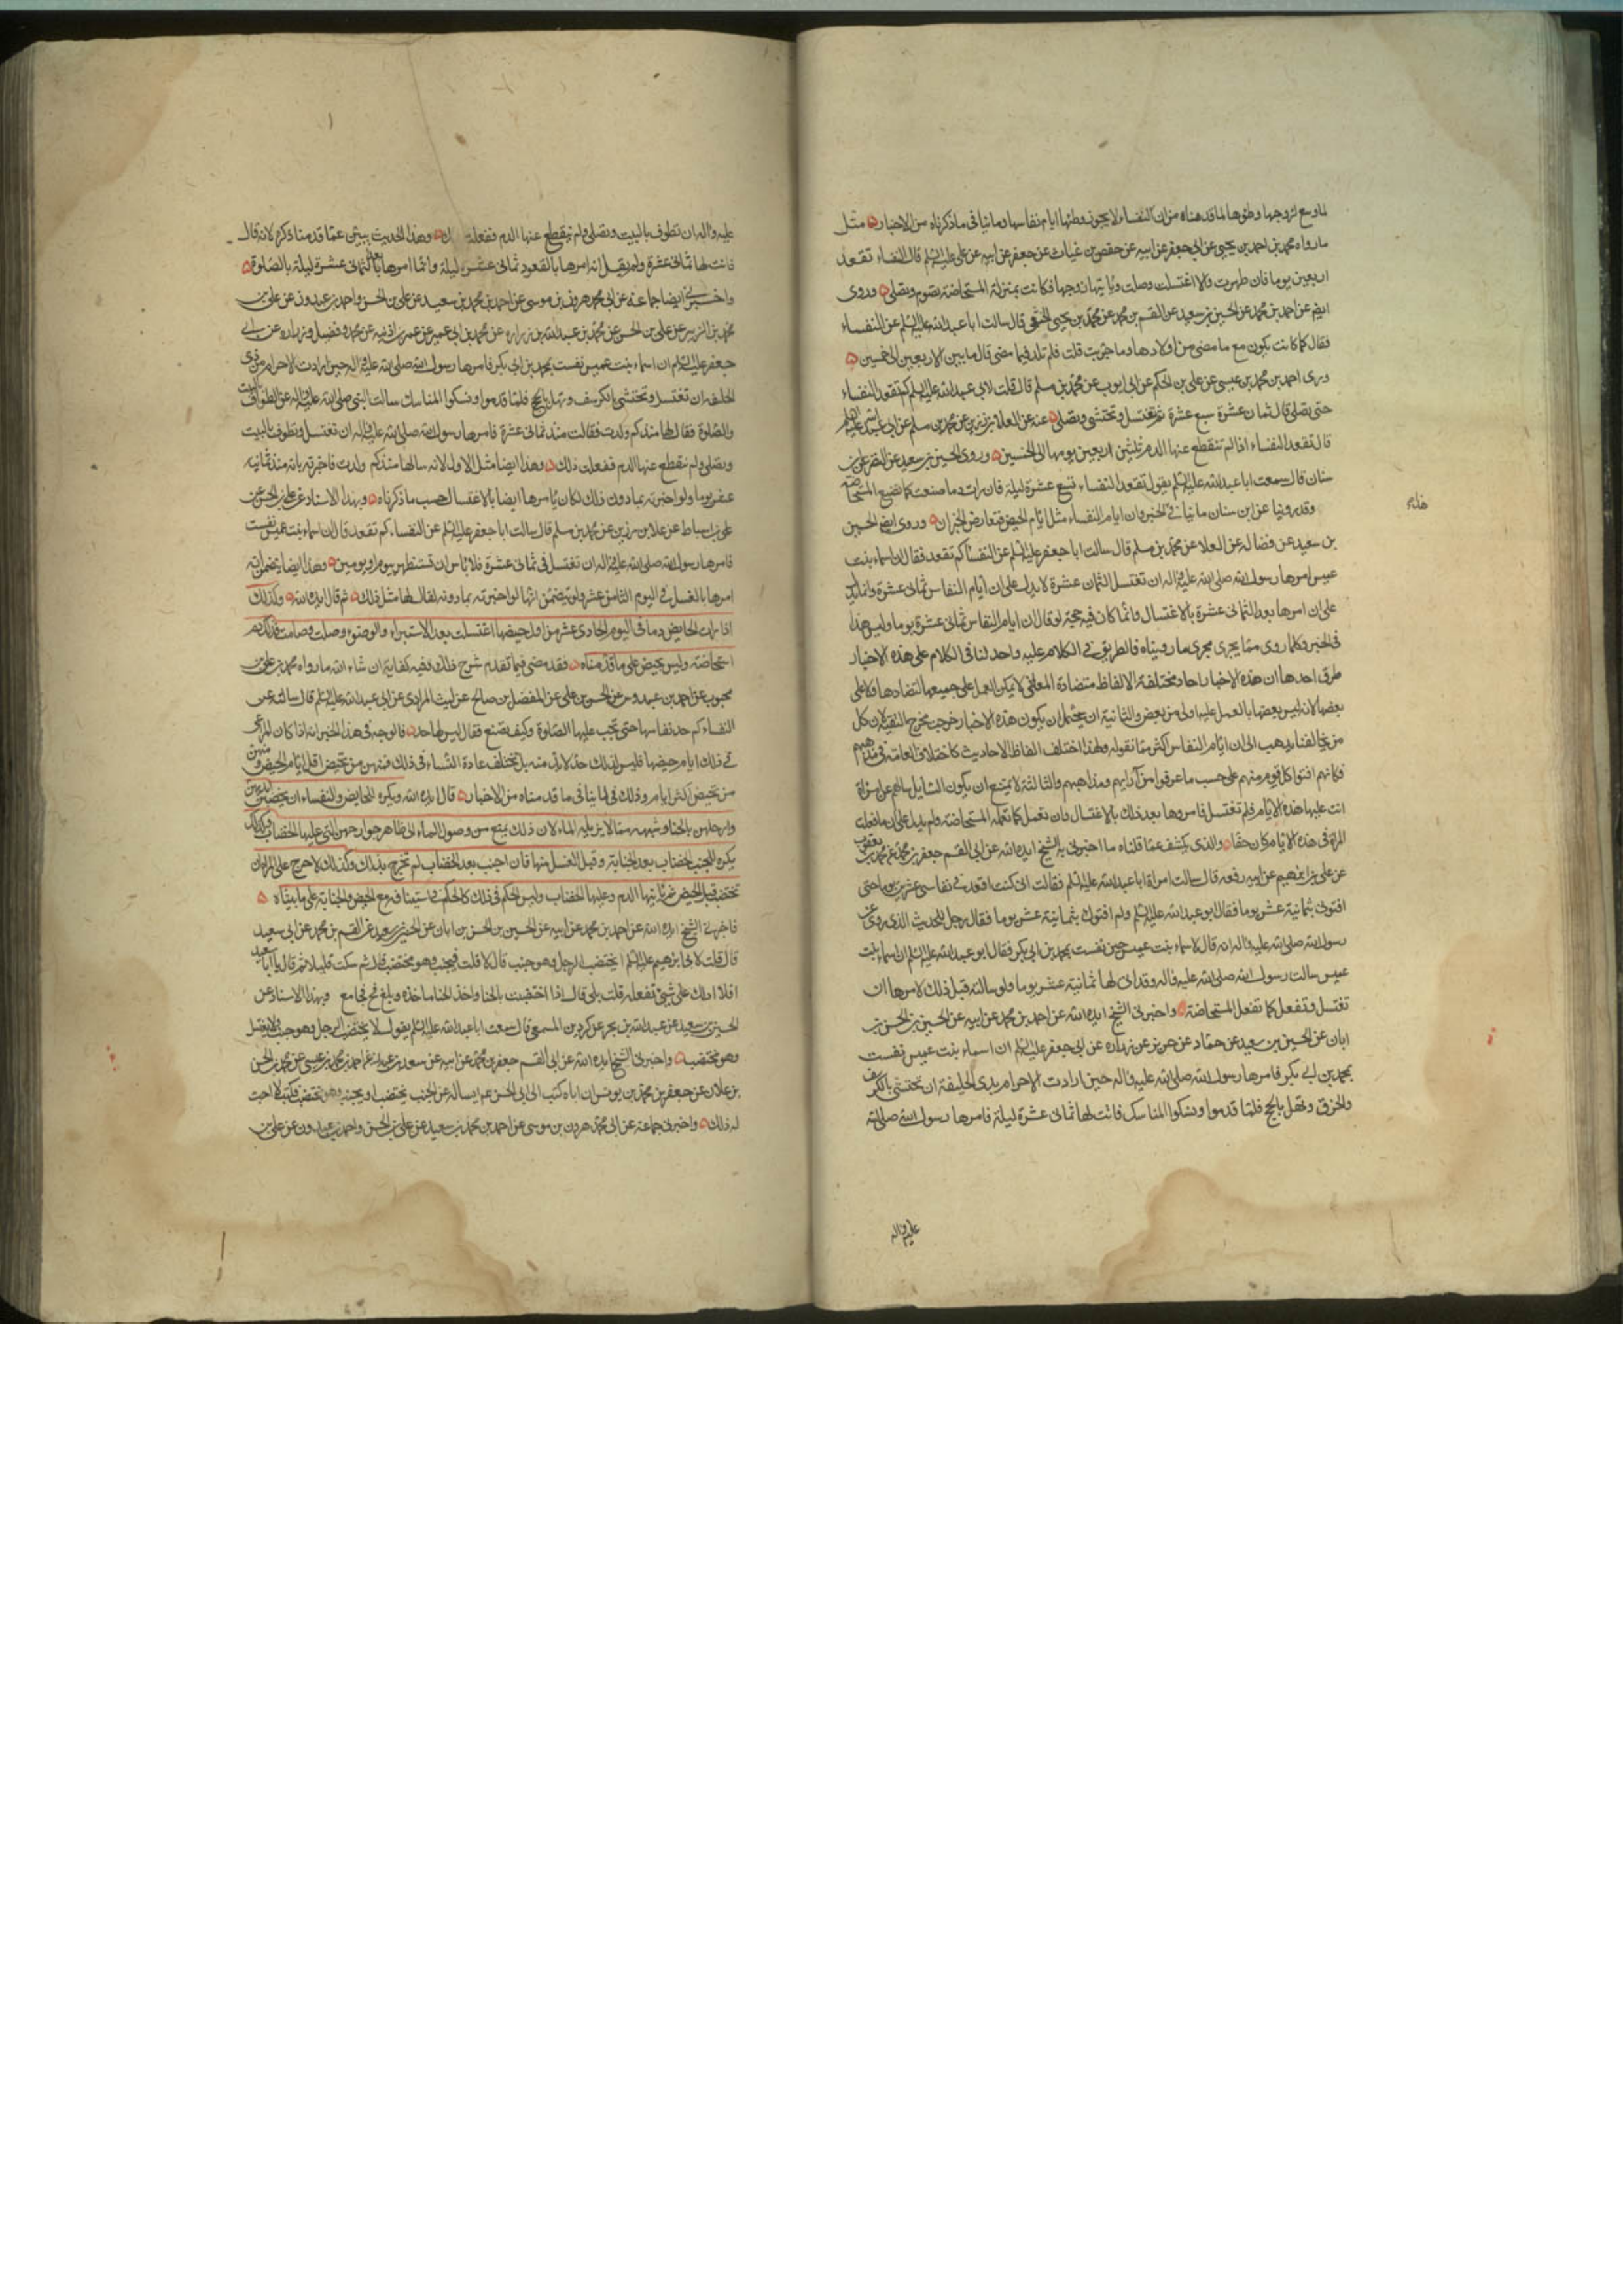 لما وسع لزوجها وطؤها لما قدمناه من ان النفساء لا يجوز وطئها ايام نفاسها وما ينافي ما ذكرناه من الاخبار مثل
ما رواه محمد بن احمد بن يحيى عن ابي جعفر عن ابيه عن حفص بن غياث عن جعفر عن ابيه عن علي عليه السلم قال النفساء تقعد
اربعين يوما فان طهرت والا اغتسلت وصلت وياتيها زوجها فكانت بمنزلة المستحاضة تصوم وتصلي وروى
ايضا عن احمد بن محمد عن الحسين بن سعيد عن القسم بن محمد عن محمد بن يحيى الخثعمي قال سالت ابا عبد الله عليه السلم عن النفساء
فقال كما كانت يكون مع ما مضى من اولادها وما جربت قلت فلم تلد فيما مضى قال ما بين الاربعين الى خمسين
وروى احمد بن محمد بن عيسى عن علي بن الحكم عن ابي ايوب عن محمد بن مسلم قال قلت لابي عبد الله عليه السلم كم تقعد النفساء
حتى تصلي قال ثمان عشرة سبع عشرة ثم تغتسل وتحتشي وتصلي عنه عن العلا بن رزين عن محمد بن مسلم عن ابي عبد الله عليه السلم
قال تقعد النفساء اذا لم تنقطع عنها الدم ثلثين اربعين يوما الى الخمسين وروى الحسين بن سعيد عن النضر عن ابن
سنان قال سمعت ابا عبد الله عليه السلم يقول تقعد النفساء تسع عشرة ليلة فان رات دما صنعت كما تصنع المستحاضة
وقد روينا عن ابن سنان ما ينافي الخبر وان ايام النفساء مثل ايام الحيض فتعارض الخبران وروى ايضا الحسين
بن سعيد عن فضالة عن العلا عن محمد بن مسلم قال سالت ابا جعفر عليه السلم عن النفساء كم تقعد فقال ان اسماء بنت
عميس امرها رسول الله صلى الله عليه واله ان تغتسل لثمان عشرة لا يدل على ان ايام النفاس ثماني عشرة وانما يدل
على ان امرها بعد الثماني عشرة بالاغتسال وانما كان فيه حجة لو قال ان ايام النفاس ثماني عشرة يوما وليس هذا
في الخبر وكلما روى مما يجري مجرى ما رويناه فالطريق في الكلام عليه واحد لنا في الكلام على هذه الاخبار
طرق احدها ان هذه الاخبار احاد مختلفة الالفاظ متضادة المعاني لا يمكن العمل على جميعها لتضادها ولا على
بعضها لانه ليس بعضها بالعمل عليه اولى من بعض والثانية ان يحتمل ان يكون هذه الاخبار خرجت مخرج التقية لان كل
من يخالفنا يذهب الى ان ايام النفاس اكثر مما نقوله ولهذا اختلف الفاظ الاحاديث كاختلاف العامة في مذاهبهم
فكانهم افتوا كل قوم منهم على حسب ما عرفوا من آرايهم ومذاهبهم والثالثة لا يمتنع ان يكون السايل سالهم عن امراة
اتت عليها هذه الايام فلم تغتسل فامروها بعد ذلك بالاغتسال وان تعمل كما تعمله المستحاضة ولم يدل على ان ما فعلت
المراة في هذه الايام كان حقا والذي يكشف عما قلناه ما اخبرني به الشيخ ايده الله عن ابي القسم جعفر بن محمد عن محمد بن يعقوب
عن علي بن ابرهيم عن ابيه رفعه قال سالت امراة ابا عبد الله عليه السلم فقالت اني كنت اقعد في نفاسي عشرين يوما حتى
افتوني بثمانية عشر يوما فقال ابو عبد الله عليه السلم ولم افتوك بثمانية عشر يوما فقال رجل للحديث الذي روى عن
رسول الله صلى الله عليه واله انه قال لاسماء بنت عميس حين نفست بمحمد بن ابي بكر فقال ابو عبد الله عليه السلم ان اسماء بنت
عميس سالت رسول الله صلى الله عليه واله وقد اتى لها ثمانية عشر يوما ولو سالته قبل ذلك لامرها ان
تغتسل وتفعل كما تفعل المستحاضة واخبرني الشيخ ايده الله عن احمد بن محمد عن ابيه عن الحسين بن الحسن بن
ابان عن الحسين بن سعيد عن حماد عن حريز عن زرارة عن ابي جعفر عليه السلم ان اسماء بنت عميس نفست
بمحمد بن ابي بكر فامرها رسول الله صلى الله عليه واله حين ارادت الاحرام بذي الحليفة ان تحتشي بالكرسف
والخرق وتهل بالحج فلما قدموا ونسكوا المناسك فاتت لها ثماني عشرة ليلة فامرها رسول الله صلى الله
عليه واله
عليه واله ان تطوف بالبيت وتصلي ولم ينقطع عنها الدم ففعلت وهذا الحديث يبين عما قدمنا ذكره لانه قال
فاتت لها ثماني عشرة ولم يقل انه امرها بالقعود ثماني عشرة ليلة وانما امرها بعد الثماني عشرة ليلة بالصلوة
واخبرني ايضا جماعة عن ابي محمد هرون بن موسى عن احمد بن محمد بن سعيد عن علي بن الحسن واحمد بن عبدون عن علي بن
محمد بن الزبير عن علي بن الحسن عن محمد بن عبد الله بن زرارة عن محمد بن ابي عمير عن عمر بن اذينة عن محمد وفضيل وزرارة عن ابي
جعفر عليه السلم ان اسماء بنت عميس نفست بمحمد بن ابي بكر فامرها رسول الله صلى الله عليه واله حين ارادت الاحرام من ذي
الحليفة ان تغتسل وتحتشي بالكرسف وتهل بالحج فلما قدموا ونسكوا المناسك سالت النبي صلى الله عليه واله عن الطواف بالبيت
والصلوة فقال لها منذ كم ولدت فقالت منذ ثماني عشرة فامرها رسول الله صلى الله عليه واله ان تغتسل وتطوف بالبيت
وتصلي ولم ينقطع عنها الدم ففعلت ذلك وهذا ايضا مثل الاول لانه سالها منذ كم ولدت فاخبرته بانه منذ ثمانية
عشر يوما ولو اخبرته بما دون ذلك لكان يامرها ايضا بالاغتسال حسب ما ذكرناه وبهذا الاسناد عن علي بن الحسن عن
علي بن اسباط عن علا بن رزين عن محمد بن مسلم قال سالت ابا جعفر عليه السلم عن النفساء كم تقعد قال ان اسماء بنت عميس نفست
فامرها رسول الله صلى الله عليه واله ان تغتسل في ثماني عشرة فلا باس ان تستظهر بيوم او يومين وهذا ايضا يتضمن انه
امرها بالغسل في اليوم الثامن عشر ولم يتضمن انها لو اخبرته بما دونه لقال لها مثل ذلك ثم قال ايده الله وكذلك
اذا رات الحايض دما في اليوم الحادي عشر من اول حيضها اغتسلت بعد الاستبراء والوضوء وصلت وصامت فذلك دم
استحاضة وليس بحيض على ما قدمناه فقد مضى فيما تقدم شرح ذلك وفيه كفاية ان شاء الله ما رواه محمد بن علي بن
محبوب عن احمد بن عبدوس عن الحسن بن علي عن المفضل بن صالح عن ليث المرادي عن ابي عبد الله عليه السلم قال سالته عن
النفساء كم حد نفاسها حتى يجب عليها الصلوة وكيف تصنع فقال ليس لها حد فالوجه في هذا الخبر انه اذا كان المراعى
في ذلك ايام حيضها فليس لذلك حد لا بد منه بل تختلف عادة النساء في ذلك فمنهن من تحيض اقل ايام الحيض ومنهن
من تحيض اكثر ايام وذلك في لا ينافي ما قدمناه من الاخبار قال ايده الله ويكره للحايض والنفساء ان يخضبن ايديهن
وارجلهن بالحنا وشبهه مما لا يزيله الماء لان ذلك يمنع من وصول الماء الى ظاهر جوارحهن التي عليها الخضاب وكذلك
يكره للجنب الخضاب بعد الجنابة وقبل الغسل منها فان اجنب بعد الخضاب لم تخرج بذلك وكذلك لا حرج على المراة ان
تختضب قبل الحيض ثم ياتيها الدم وعليها الخضاب وليس الحكم في ذلك كالحكم في استينافه مع الحيض والجنابة على ما بيناه
فاخبرني الشيخ ايده الله عن احمد بن محمد عن ابيه عن الحسين بن الحسن بن ابان عن الحسين بن سعيد عن القسم بن محمد عن ابي سعيد
قال قلت لابي ابرهيم عليه السلم ايختضب الرجل وهو جنب قال لا قلت فيجنب وهو مختضب قال لا ثم سكت قليلا ثم قال يا ابا سعيد
افلا ادلك على شيء تفعله قلت بلى قال اذا اختضبت بالحنا واخذ الحنا ماخذه وبلغ فح فجامع وبهذا الاسناد عن
الحسين بن سعيد عن عبد الله بن بحر عن كردين المسمعي قال سمعت ابا عبد الله عليه السلم يقول لا يختضب الرجل وهو جنب ولا يغتسل
وهو مختضب واخبرني الشيخ ايده الله عن ابي القسم جعفر بن محمد عن ابيه عن سعد بن عبد الله عن احمد بن محمد بن عيسى عن محمد بن الحسن
بن علان عن جعفر بن محمد بن يونس ان اباه كتب الى ابي الحسن عم يساله عن الجنب يختضب او يجنب وهو مختضب فكتب لا احب
له ذلك واخبرني جماعة عن ابي محمد هرون بن موسى عن احمد بن محمد بن سعيد عن علي بن الحسن واحمد بن عبدون عن علي بن